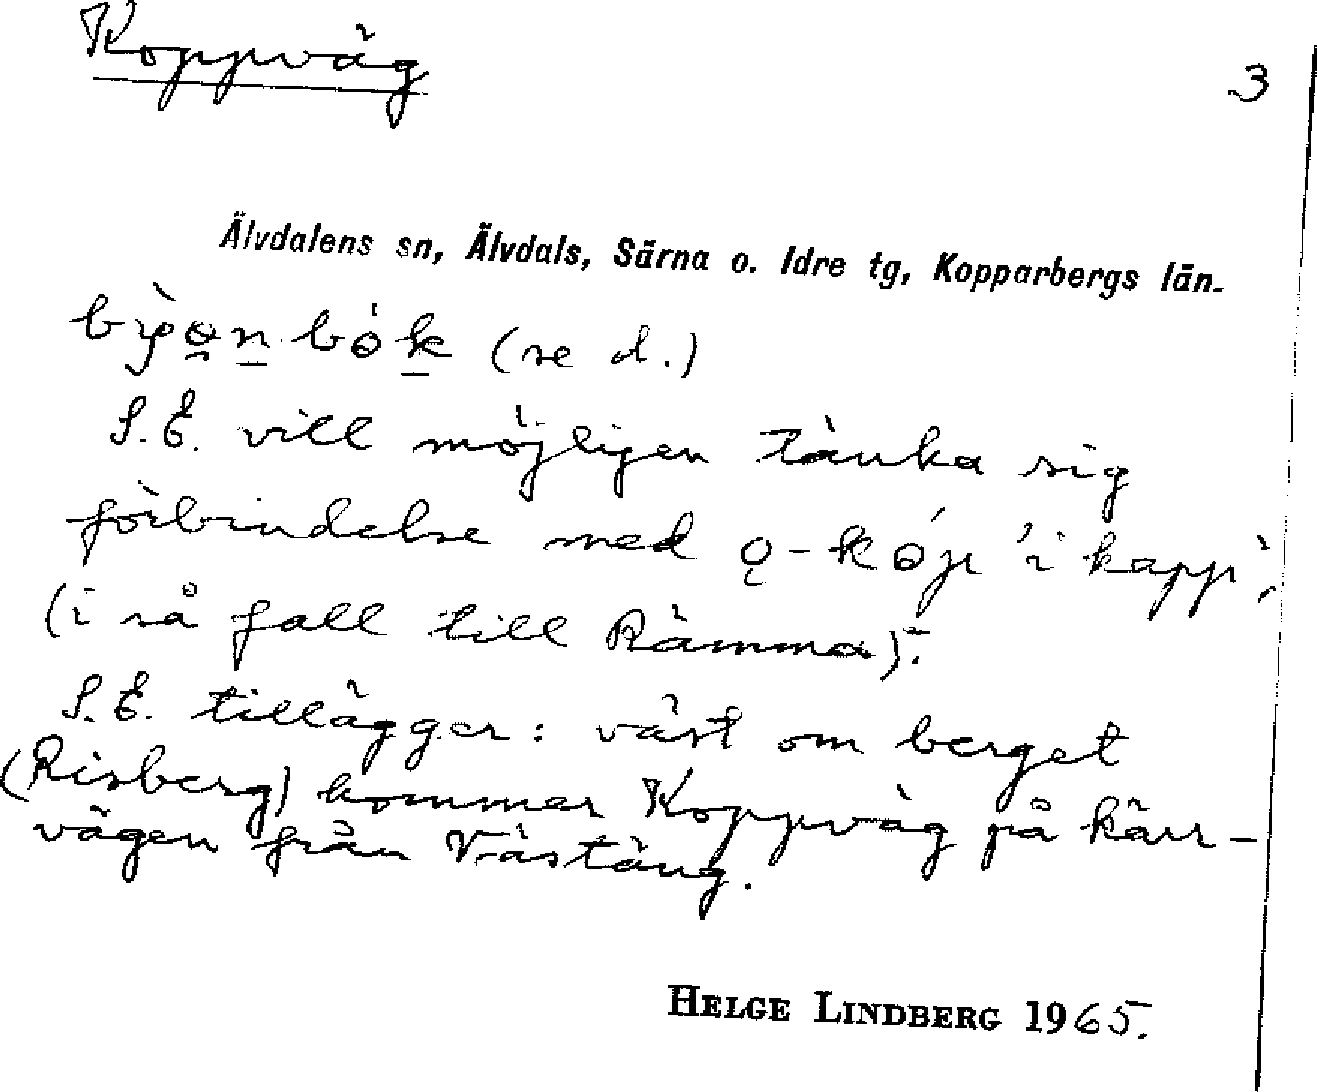 Koppväg
3
Älvdalens sn, Älvdals, Särna o. Idre tg, Kopparbergs län.
(se d.)
S.E. vill möjligen tänka sig
förbindelse med ǫ-kóp 'i kapp',
(i så fall till Rämma).
S.E. tillägger: väst om berget
(Risberg) kommer Koppväg på kärr-
vägen från Västäng.
HELGE LINDBERG 1965.